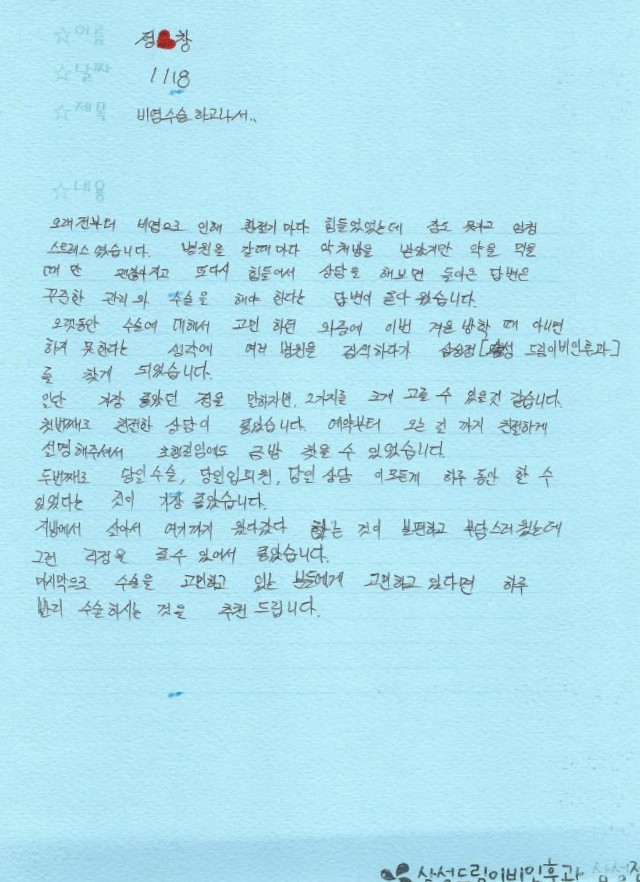 정❤창
1/18
비염수술 하고나서..
오래전부터 비염으로 인해 환절기마다 힘들었었는데 잠도 못자고 엄청
스트레스 였습니다. 병원을 갈때마다 약처방을 받았지만 약을 먹을
때 만 괜찮아지고 또다시 힘들어서 상담을 해보면 돌아온 답변은
꾸준한 관리와 수술을 해야 한다는 답변이 돌아 왔습니다.
오랫동안 수술에 대해서 고민 하던 와중에 이번 겨울 방학 때 아니면
하지 못한다는 생각에 여러 병원을 검색하다가 [삼성 드림이비인후과]
를 찾게 되었습니다.
일단 가장 좋았던 점을 말하자면, 2가지를 크게 고를 수 있을것 같습니다.
첫번째로 친절한 상담이 좋았습니다. 예약부터 오는 길 까지 친절하게
설명해주셔서 초행길임에도 금방 찾을 수 있었습니다.
두번째로 당일수술, 당일입퇴원, 당일 상담 이모든게 하루 동안 할 수
있었다는 것이 가장 좋았습니다.
살아서 여기까지 왔다갔다 하는 것이 불편하고 부담스러웠는데
그런 걱정을 줄수 있어서 좋았습니다.
마지막으로 수술을 고민하고 있는 분들에게 고민하고 있다면 하루
빨리 수술하시는 것을 추천 드립니다.
삼성드림이비인후과